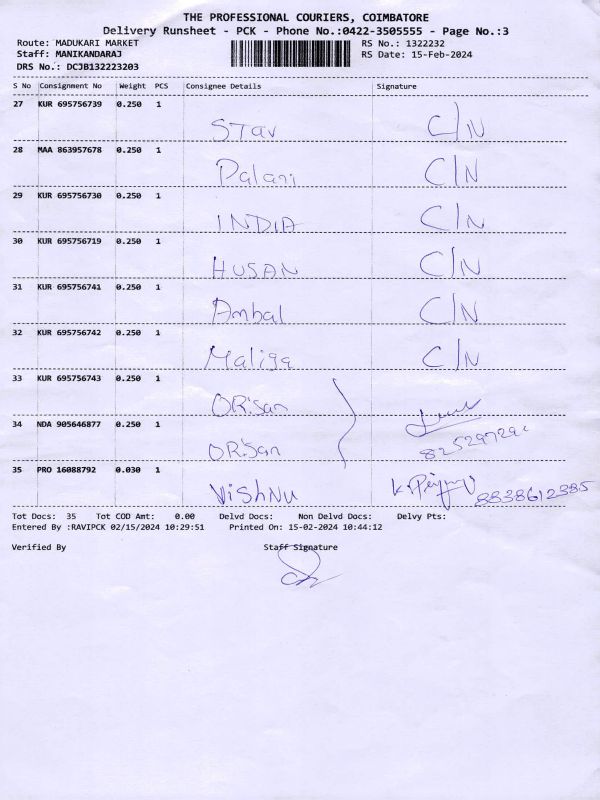 THE PROFESSIONAL COURIERS, COIMBATORE
Delivery Runsheet - PCK - Phone No.:0422-3505555 - Page No.:3
Route: MADUKARI MARKET RS No.: 1322232
Staff: MANIKANDARAJ RS Date: 15-Feb-2024
DRS No.: DCJB132223203
S No Consignment No Weight PCS Consignee Details Signature
27 KUR 695756739 0.250 1
Stav C/N
28 MAA 863957678 0.250 1
Palani C/N
29 KUR 695756730 0.250 1
INDIA C/N
30 KUR 695756719 0.250 1
HUSAN C/N
31 KUR 695756741 0.250 1
Ambal C/N
32 KUR 695756742 0.250 1
Maliga C/N
33 KUR 695756743 0.250 1
ORiSan
34 NDA 905646877 0.250 1
ORiSan
35 PRO 16088792 0.030 1
ViShNu 8838612385
Tot Docs: 35 Tot COD Amt: 0.00 Delvd Docs: Non Delvd Docs: Delvy Pts:
Entered By :RAVIPCK 02/15/2024 10:29:51 Printed On: 15-02-2024 10:44:12
Verified By Staff Signature